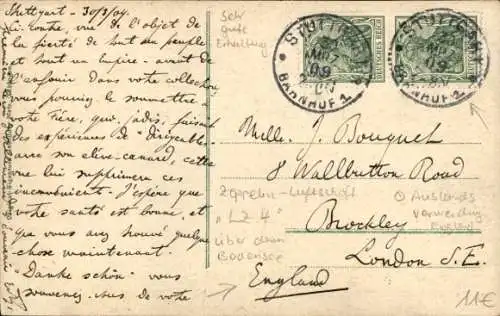 Stuttgart - 30/3/09.
Ci-contre, vue de l'objet de
la fierté de tout un peuple
et tout un Empire. avant de
l'enfouir dans votre collection
vous pourriez le soumettre
votre Père, que, jadis, faisait
des expériences de "dirigeables"
avec son élève-canard, cette
vue lui supprimera ces
inconvénients. J'espère que
votre santé est bonne, et
que vous avez trouvé quelque
chose maintenant.
"Danke schön" vous
souvenez-vous de votre
Sehr
gute
Erhaltung
STUTTGART
MRZ
09
BAHNHOF 1
STUTTGART
MRZ
09
BAHNHOF 1
Mlle. J. Bouquet
8 Wallbutton Road
Brockley
London S.E.
England
Zeppelin-Luftschiff
"LZ 4"
über dem
Bodensee
Auslands
Verwendung
11€